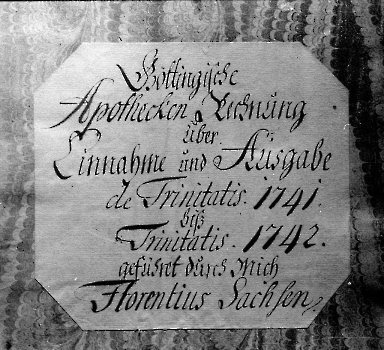 Göttingische
Apothecken Rechnung
über
Einnahme und Ausgabe
de Trinitatis. 1741.
biß
Trinitatis. 1742.
geführet durch Mich
Florentius Sachsen